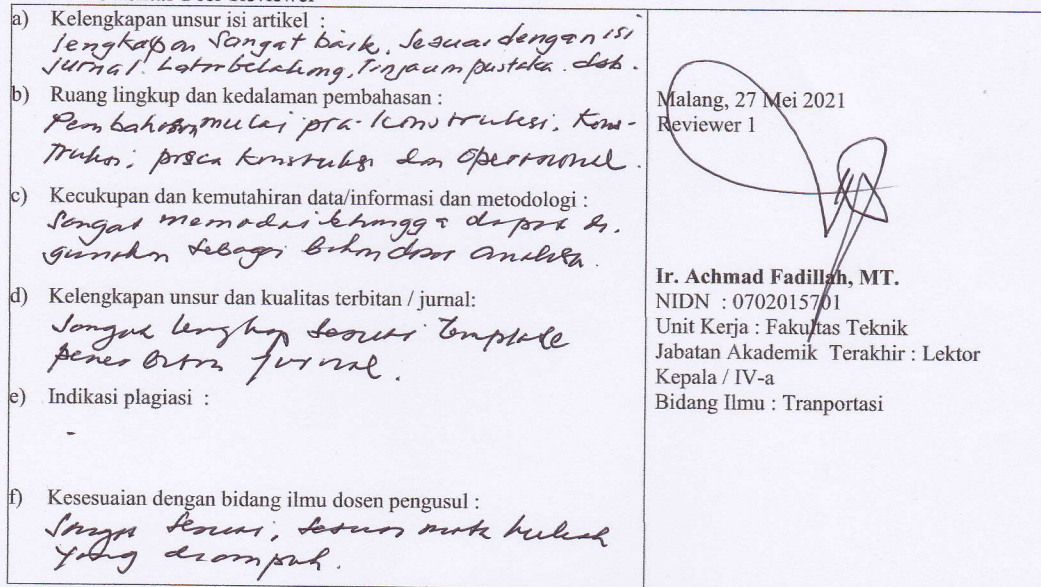 a) Kelengkapan unsur isi artikel :
lengkapan Sangat baik, Sesuai dengan isi
jurnal. Latar belakang, Tinjauan pustaka. dsb.
b) Ruang lingkup dan kedalaman pembahasan :
Pembahasan mulai pra-Konstruksi, Kons-
truksi, pasca Konstruksi dan Operasional.
c) Kecukupan dan kemutahiran data/informasi dan metodologi :
Sangat memadai sehingga dapat di.
gunakan sebagai bahan dasar analisa.
d) Kelengkapan unsur dan kualitas terbitan / jurnal:
Sangat lengkap sesuai Template
penerbitan jurnal.
e) Indikasi plagiasi :
-
f) Kesesuaian dengan bidang ilmu dosen pengusul :
Sangat sesuai, sesuai mata kuliah
yang diampuh.
Malang, 27 Mei 2021
Reviewer 1
Ir. Achmad Fadillah, MT.
NIDN : 0702015701
Unit Kerja : Fakultas Teknik
Jabatan Akademik Terakhir : Lektor
Kepala / IV-a
Bidang Ilmu : Tranportasi